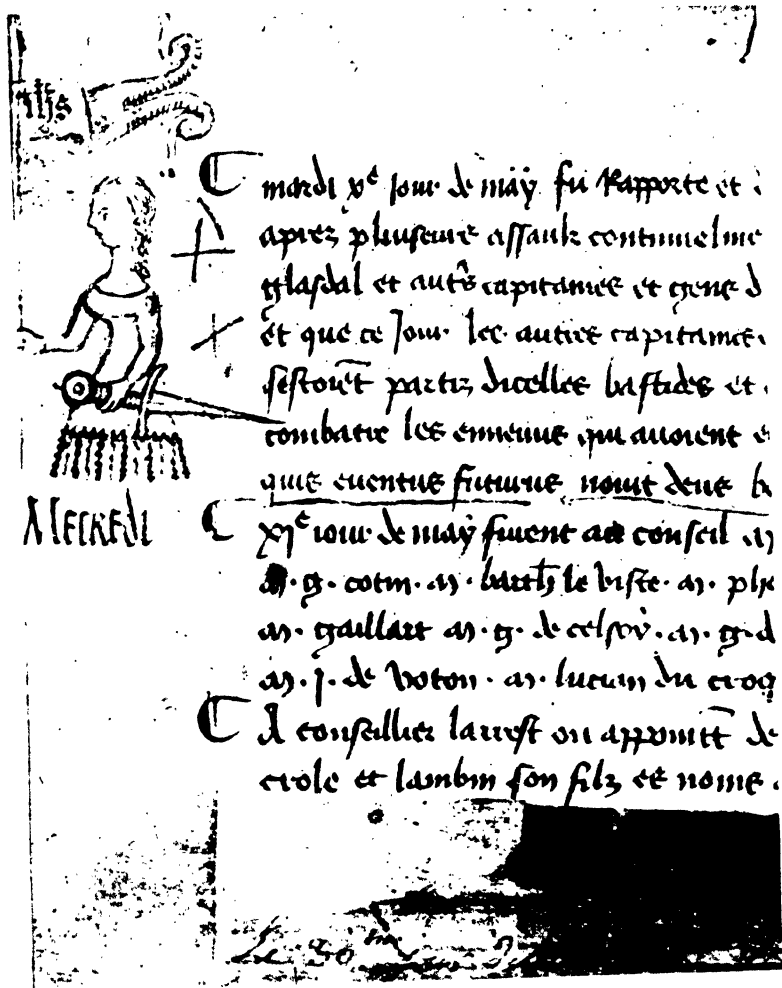 Jhs
mardi xe jour de may fu Rapporte et
aprez pluseurs assaulz continuelme
glasdal et autrs capitaines et gens d
Et que ce Jour les autres capitaines
sestoiēt partiz dicelles bastides et
combatre les ennemis qui avoient
quis eventus futurus novit deus b
MERCREDI
xje jour de may furent au conseil m
m. g. cotin. m. barth le viste. m. phe
m. gaillart m. g. de celsoy. m. g. d
m. J. de voton. m. lucian du croq
A conseillier larrest ou appointt de
crole et lambin son filz es noms